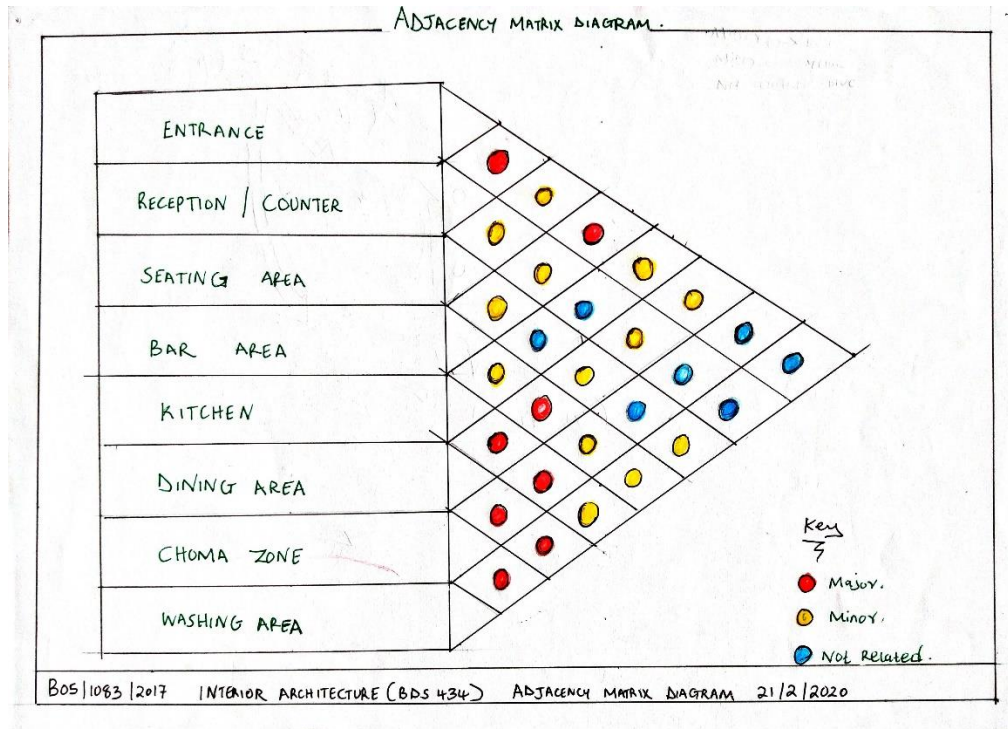 ADJACENCY MATRIX DIAGRAM.
ENTRANCE
RECEPTION / COUNTER
SEATING AREA
BAR AREA
KITCHEN
DINING AREA
CHOMA ZONE
WASHING AREA
Key
Major.
Minor.
Not Related.
B05/1083/2017 INTERIOR ARCHITECTURE (BDS 434) ADJACENCY MATRIX DIAGRAM 21/2/2020